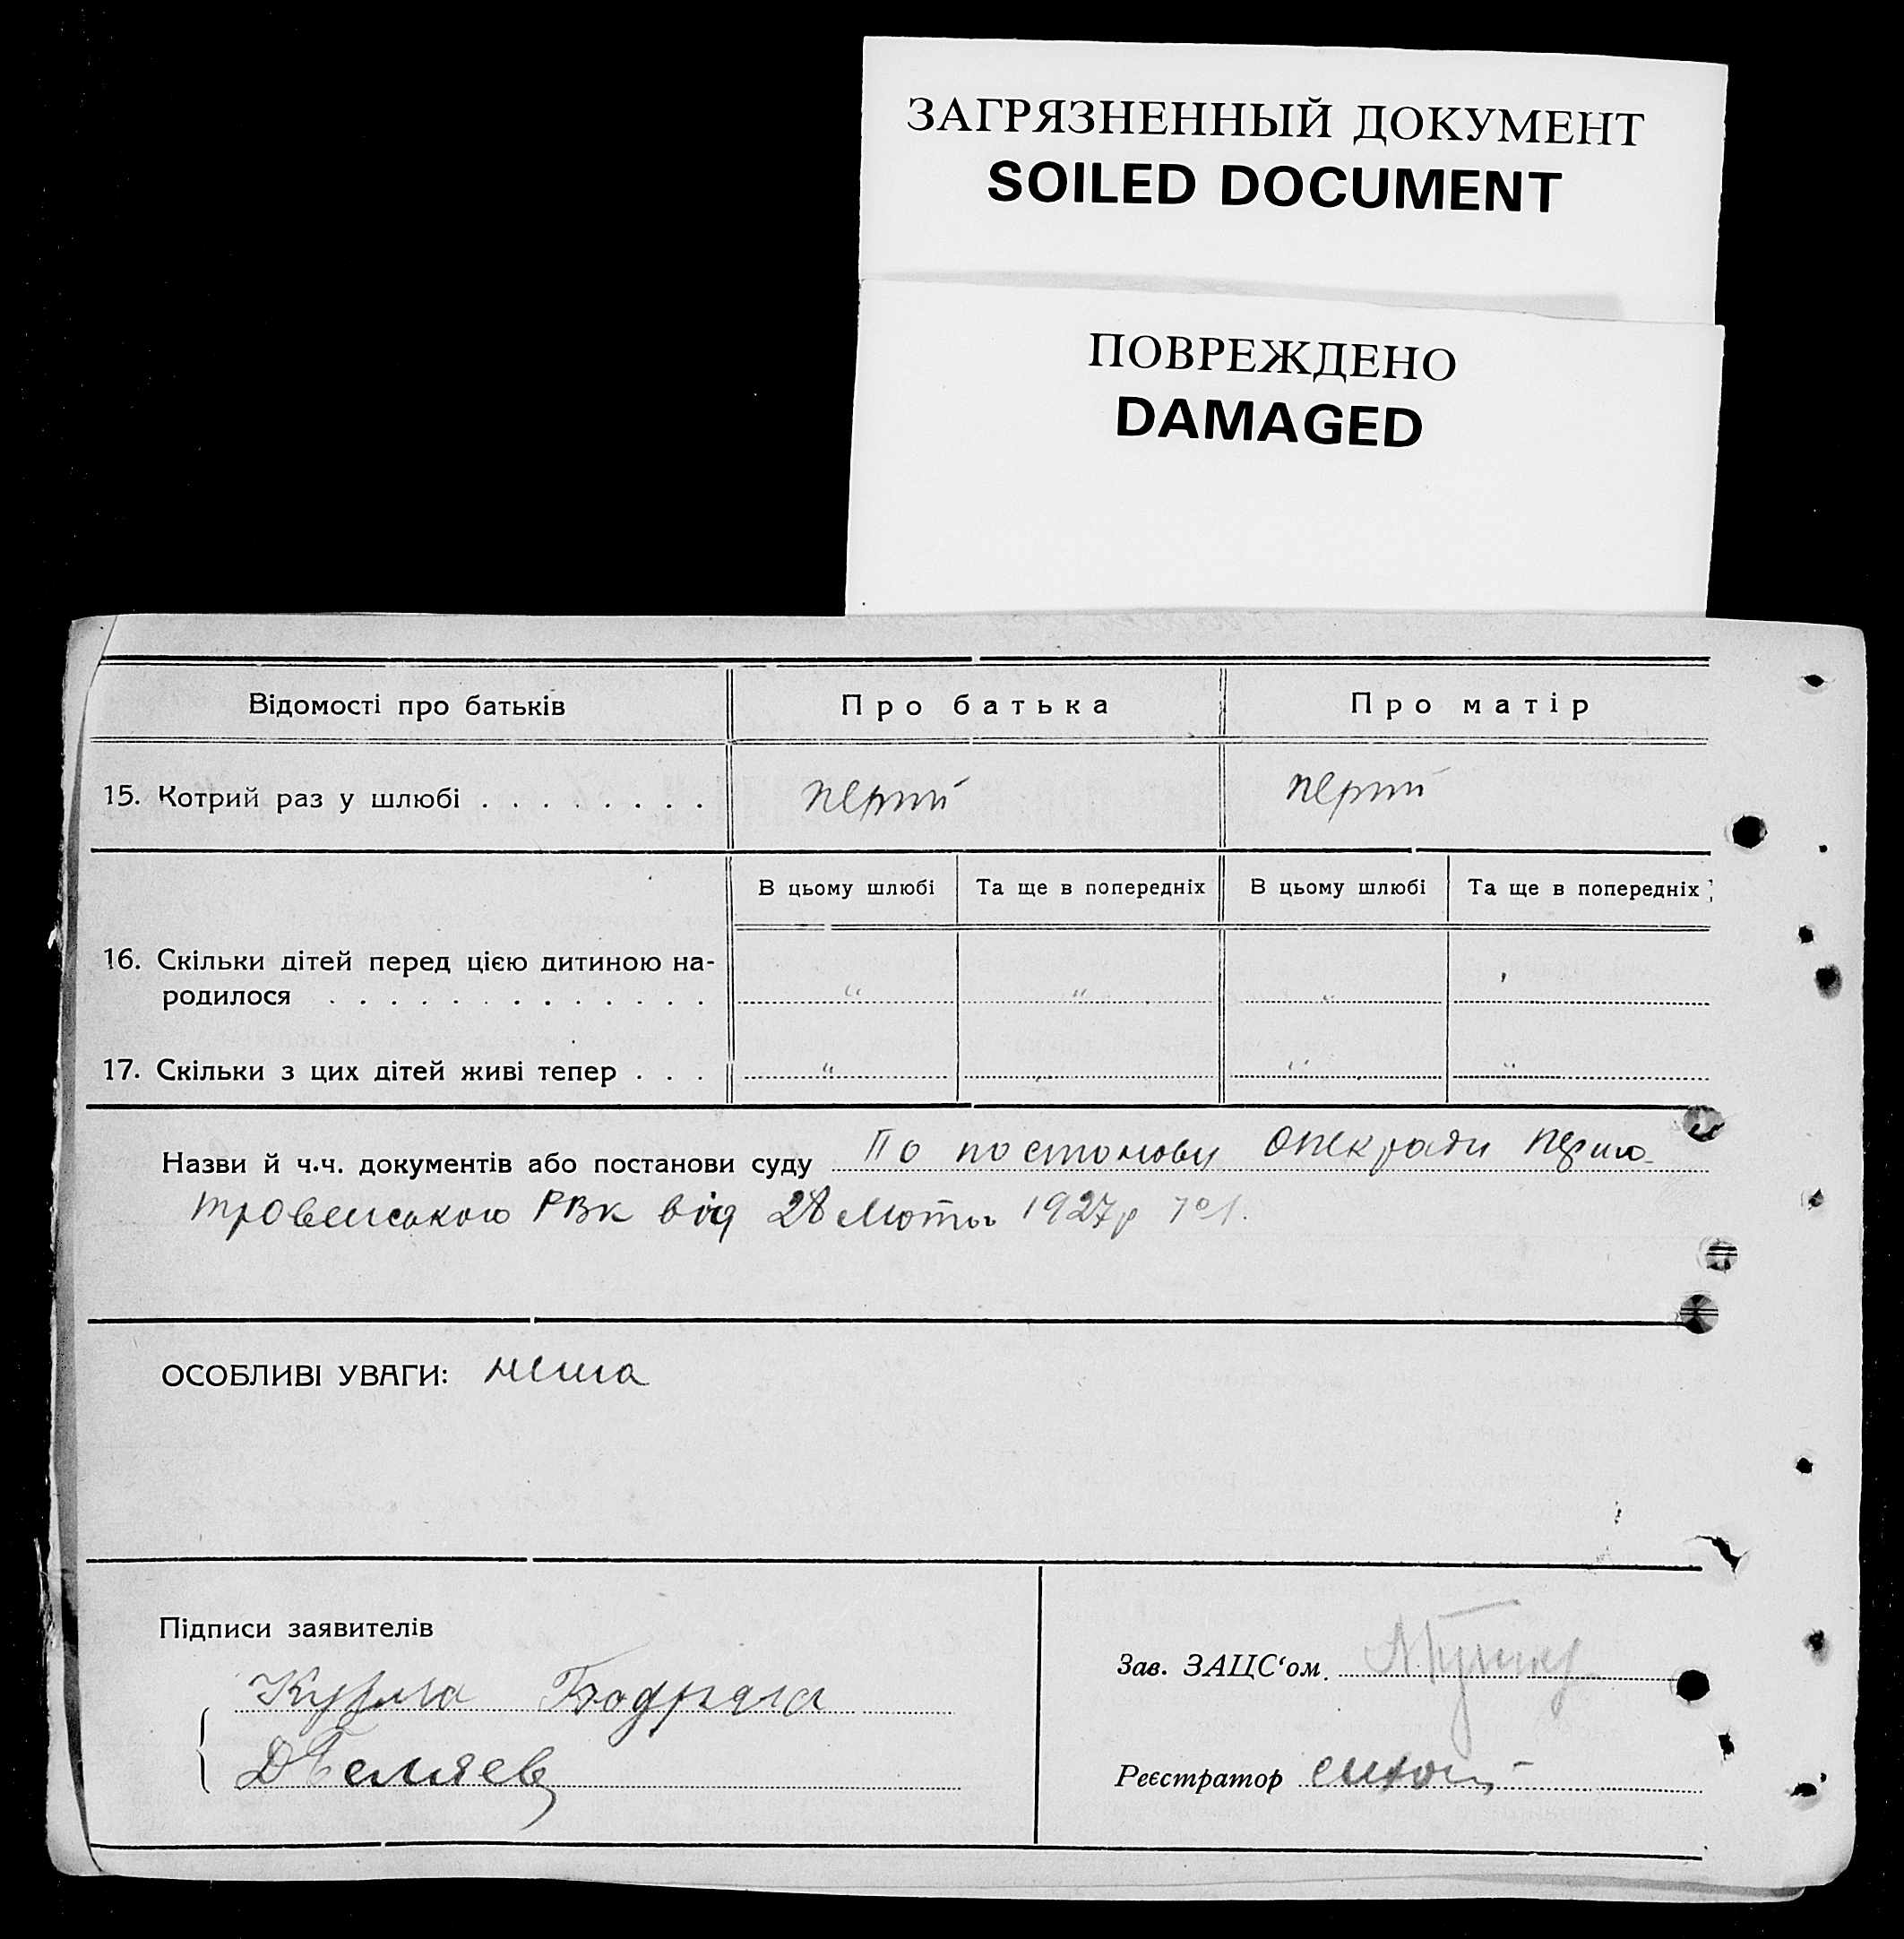 ЗАГРЯЗНЕННЫЙ ДОКУМЕНТ
SOILED DOCUMENT
ПОВРЕЖДЕНО
DAMAGED
Відомості про батьків Про батька Про матір
15. Котрий раз у шлюбі . . . . . . . . перший перший
В цьому шлюбі Та ще в попередніх В цьому шлюбі Та ще в попередніх
16. Скільки дітей перед цією дитиною на-
родилося . . . . . . . . . . . . . " " " "
17. Скільки з цих дітей живі тепер . . . " " "
Назви й ч.ч. документів або постанови суду По постонову Опекради Першо-
тровенського РВК від 28 Лютоо 1927р
ОСОБЛИВІ УВАГИ: нема
Підписи заявителів
Зав. ЗАЦС‘ом.
Кузма Бодряга
ДБеляев
Реєстратор